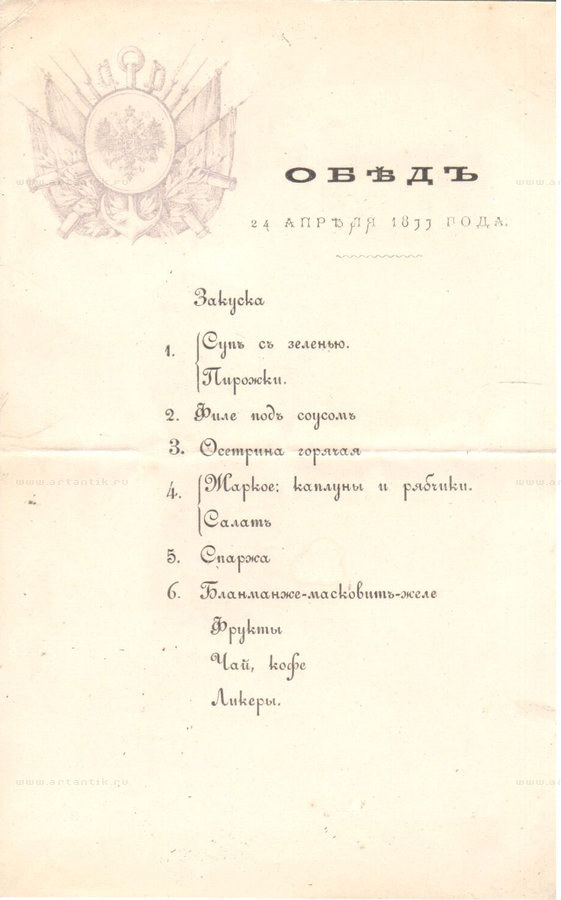 ОБѢДЪ
24 АПРѢЛЯ 1877 ГОДА.
Закуска
1. Супъ съ зеленью.
Пирожки.
2. Филе подъ соусомъ
3. Осетрина горячая
4. Жаркое: каплуны и рябчики.
Салатъ
5. Спаржа
6. Бланманже-масковитъ-желе
Фрукты
Чай, кофе
Ликеры.
www.artantik.ru
www.artantik.ru
www.artantik.ru
www.artantik.ru